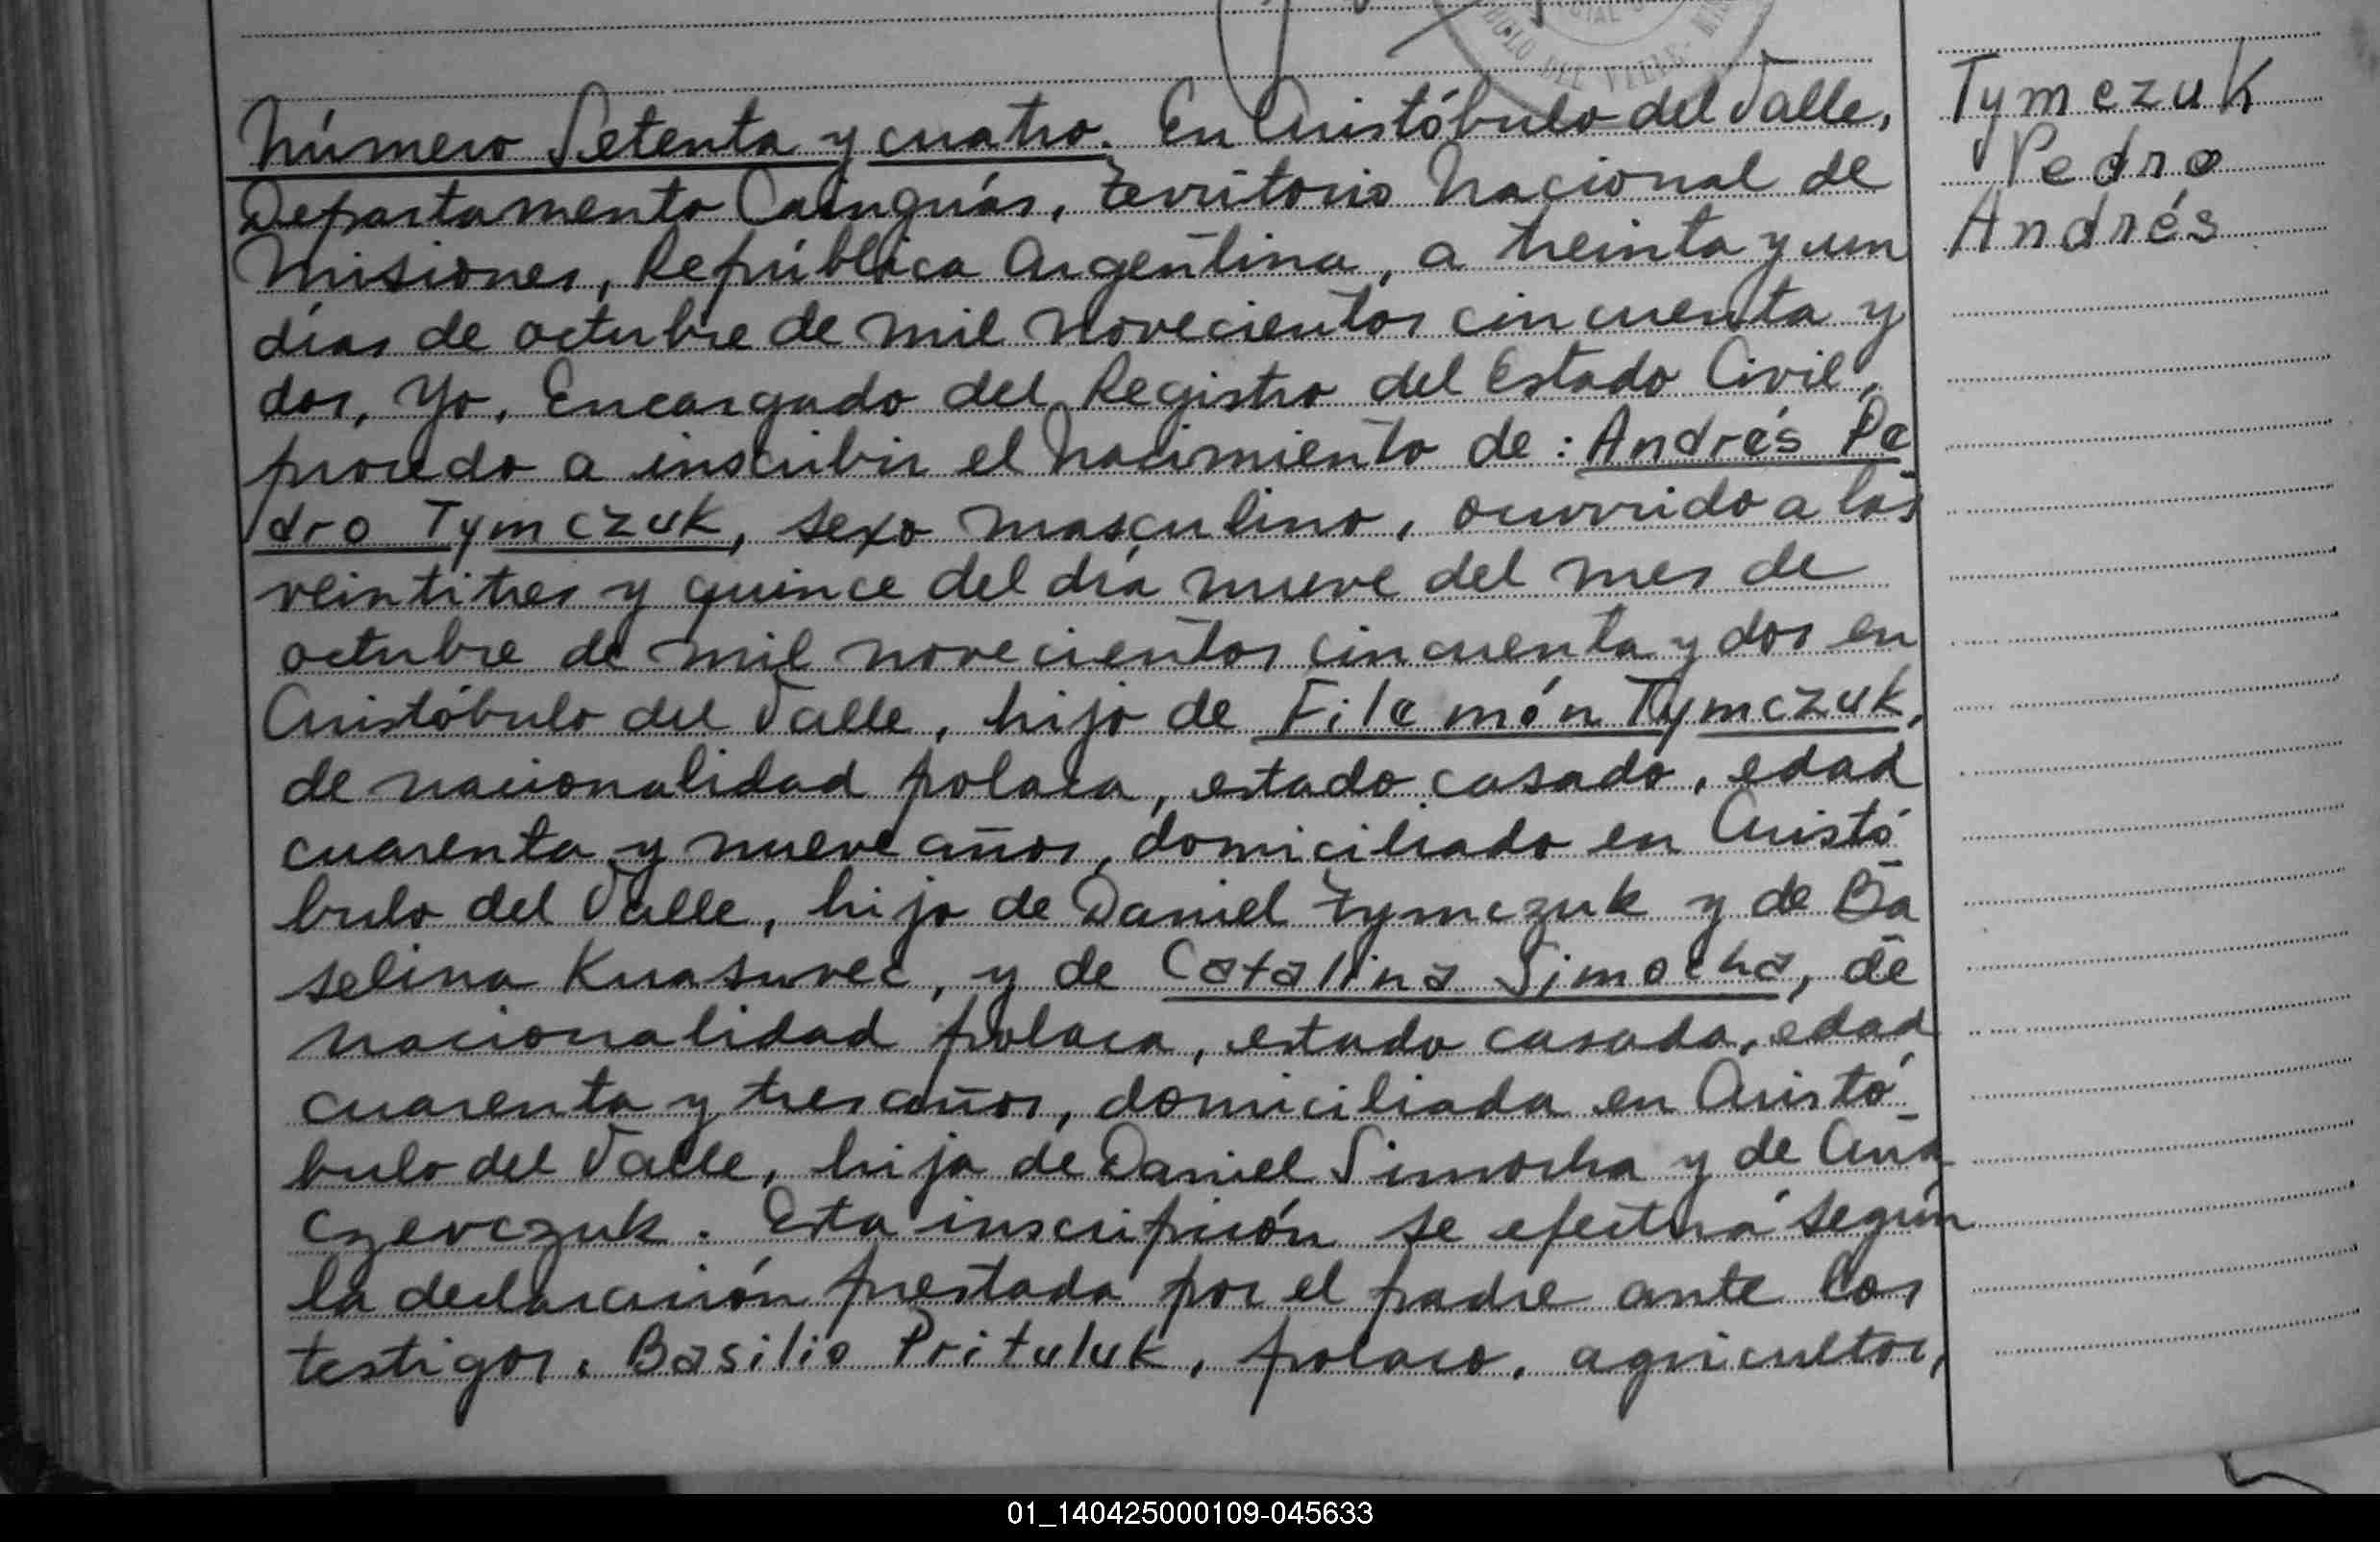 Número Setenta y cuatro. En Aristóbulo del Valle,
Departamento Cainguás, territorio Nacional de
Misiones, República Argentina, a treinta y un
días de octubre de mil novecientos cincuenta y
dos, Yo, Encargado del Registro del Estado Civil,
procedo a inscribir el Nacimiento de: Andrés Pe
dro Tymczuk, sexo masculino, ocurrido a las
veintitres y quince del día nueve del mes de
octubre de mil novecientos cincuenta y dos en
Aristóbulo del Valle, hijo de Filemón Tymczuk,
de nacionalidad polaca, estado casado, edad
cuarenta y nueve años, domiciliado en Aristó
bulo del Valle, hijo de Daniel Tymczuk y de Ba
selina, y de Catalina Simocha, de
nacionalidad polaca, estado casada, edad
cuarenta y tres años, domiciliada en Aristó-
bulo del Valle, hija de Daniel Simocha y de Ana
Czerczuk. Esta inscripción se efectúa según
la declaración prestada por el padre ante los
testigos. Basilio Prituluk, polaco, agricultor,
Tymczuk
Pedro
Andrés
01_140425000109-045633